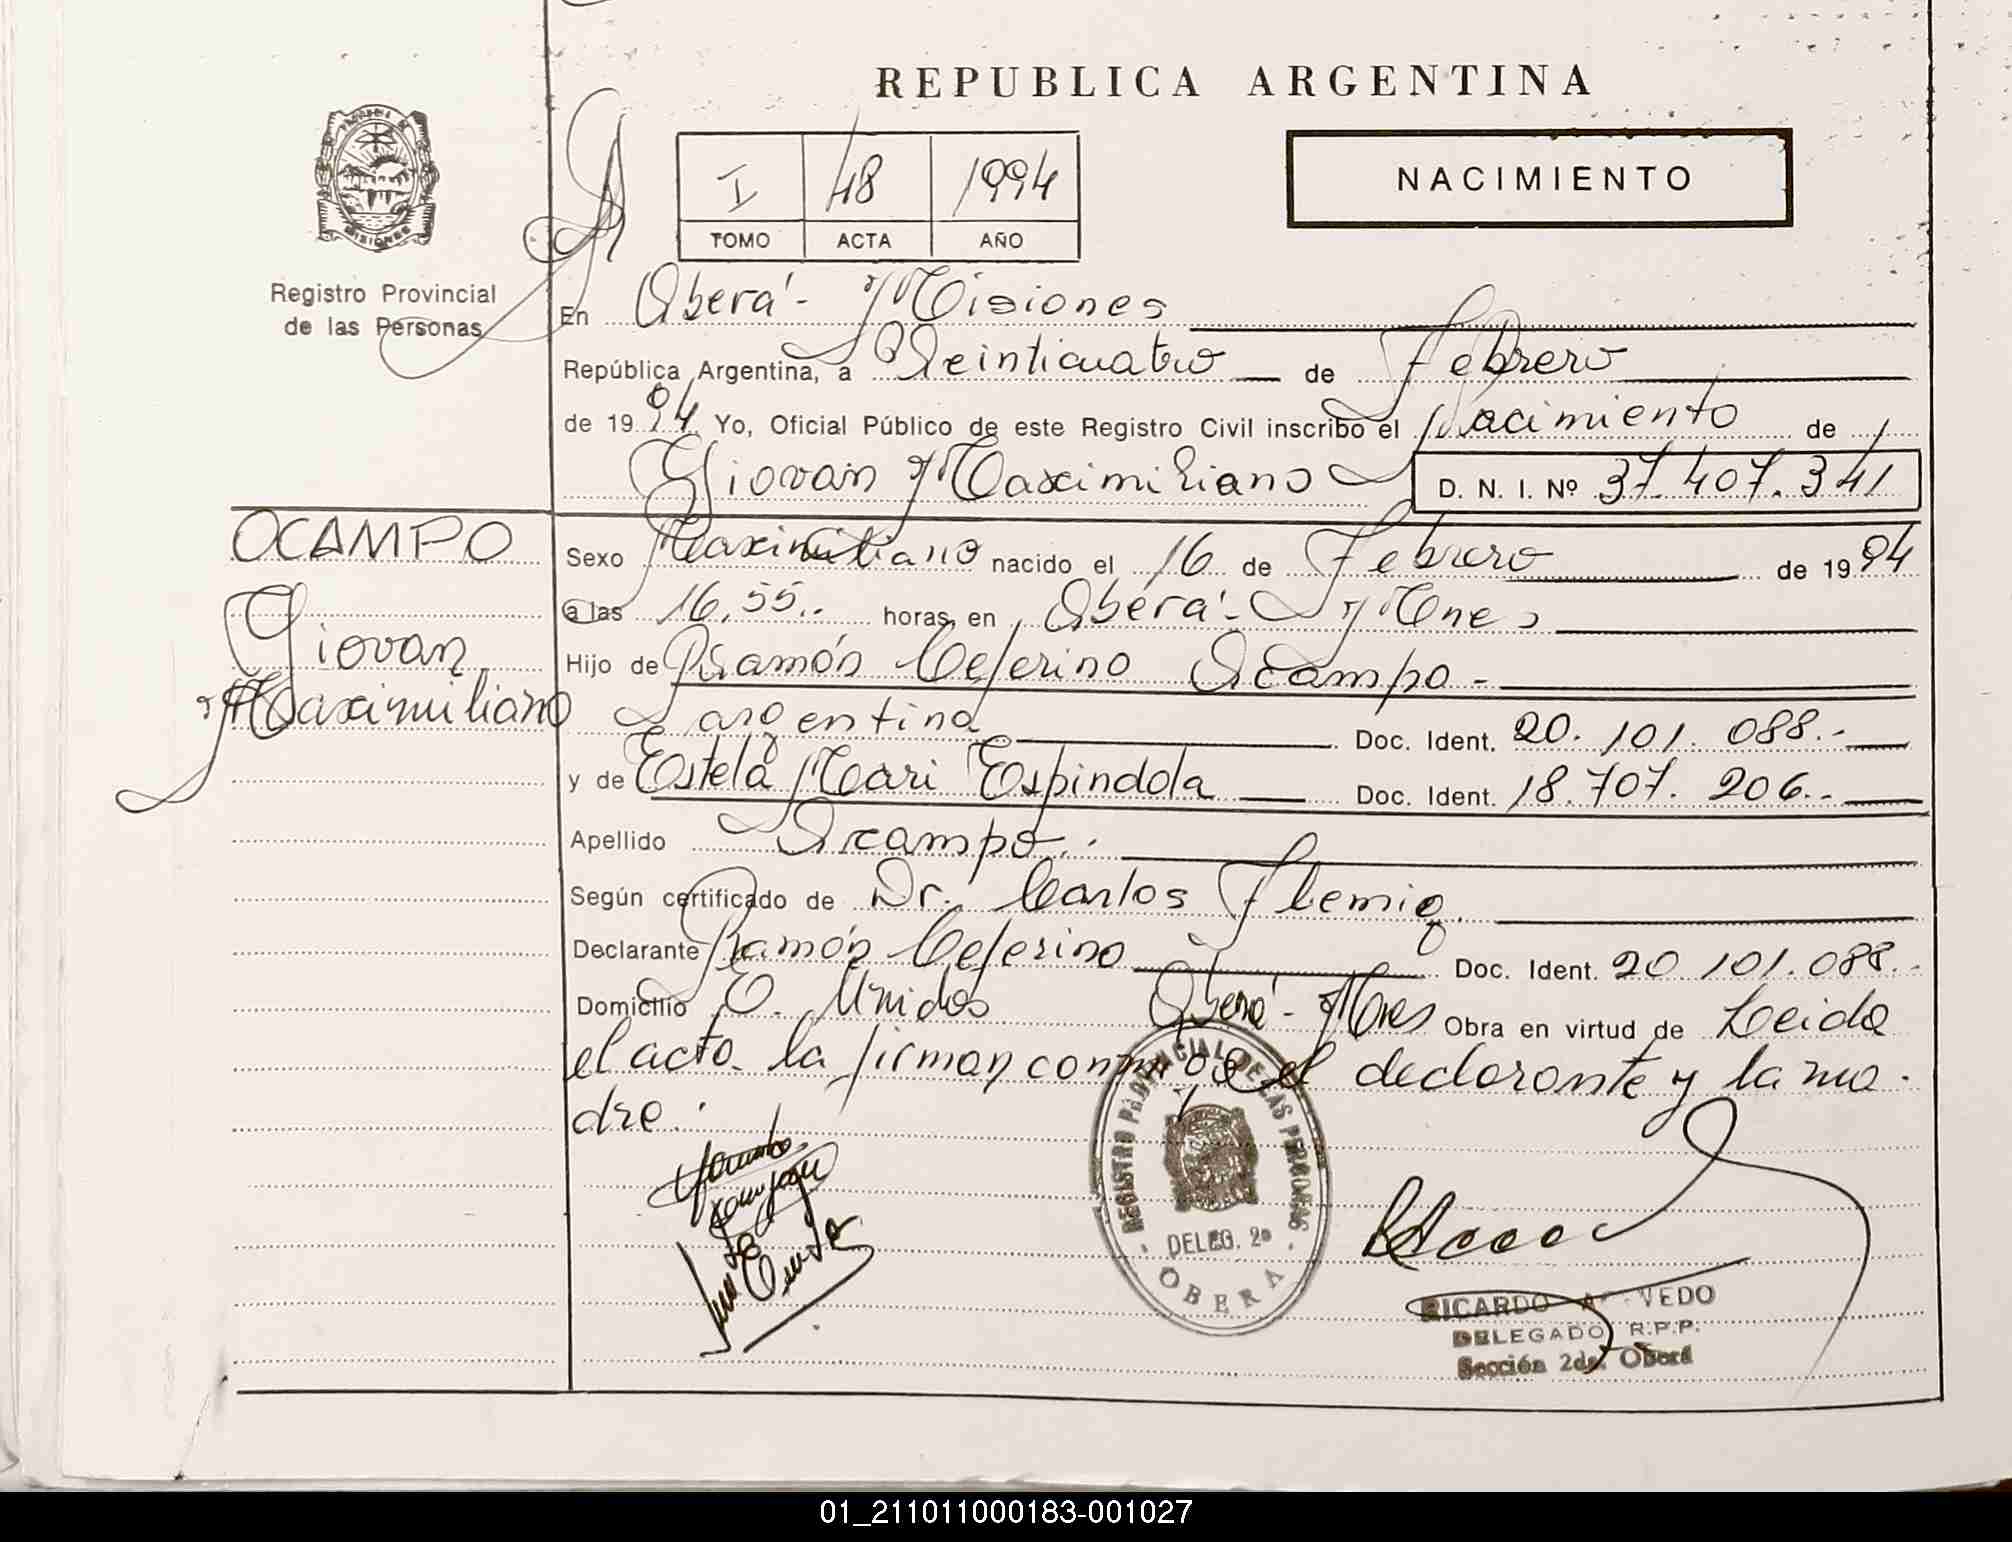 REPUBLICA ARGENTINA
I 48 1994
TOMO ACTA AÑO
NACIMIENTO
MISIONES
Registro Provincial
de las Personas
En Oberá - Misiones
República Argentina, a Veinticuatro de Febrero
de 1994 Yo, Oficial Público de este Registro Civil inscribo el Nacimiento de
Giovan Maximiliano D. N. I. Nº 37.407.341
OCAMPO
Giovan
Maximiliano
Sexo Maximiliano nacido el 16 de Febrero de 1994
a las 16,55.. horas en Oberá - Mnes
Hijo de Ramón Ceferino Ocampo -
argentina Doc. Ident. 20.101.088.-
y de Estela Mari Espindola Doc. Ident. 18.707.206.-
Apellido Ocampo.-
Según certificado de Dr. Carlos Flemig.
Declarante Ramón Ceferino Doc. Ident. 20 101.088.-
Domicilio E. Unidos Oberá - Mnes Obra en virtud de Leida
el acta la firman conmigo el declarante y la ma-
dre.
REGISTRO PROVINCIAL DE LAS PERSONAS
DELEG. 2ª
OBERA
RICARDO VEDO
DELEGADO R.P.P.
Sección 2da. Oberá
01_211011000183-001027